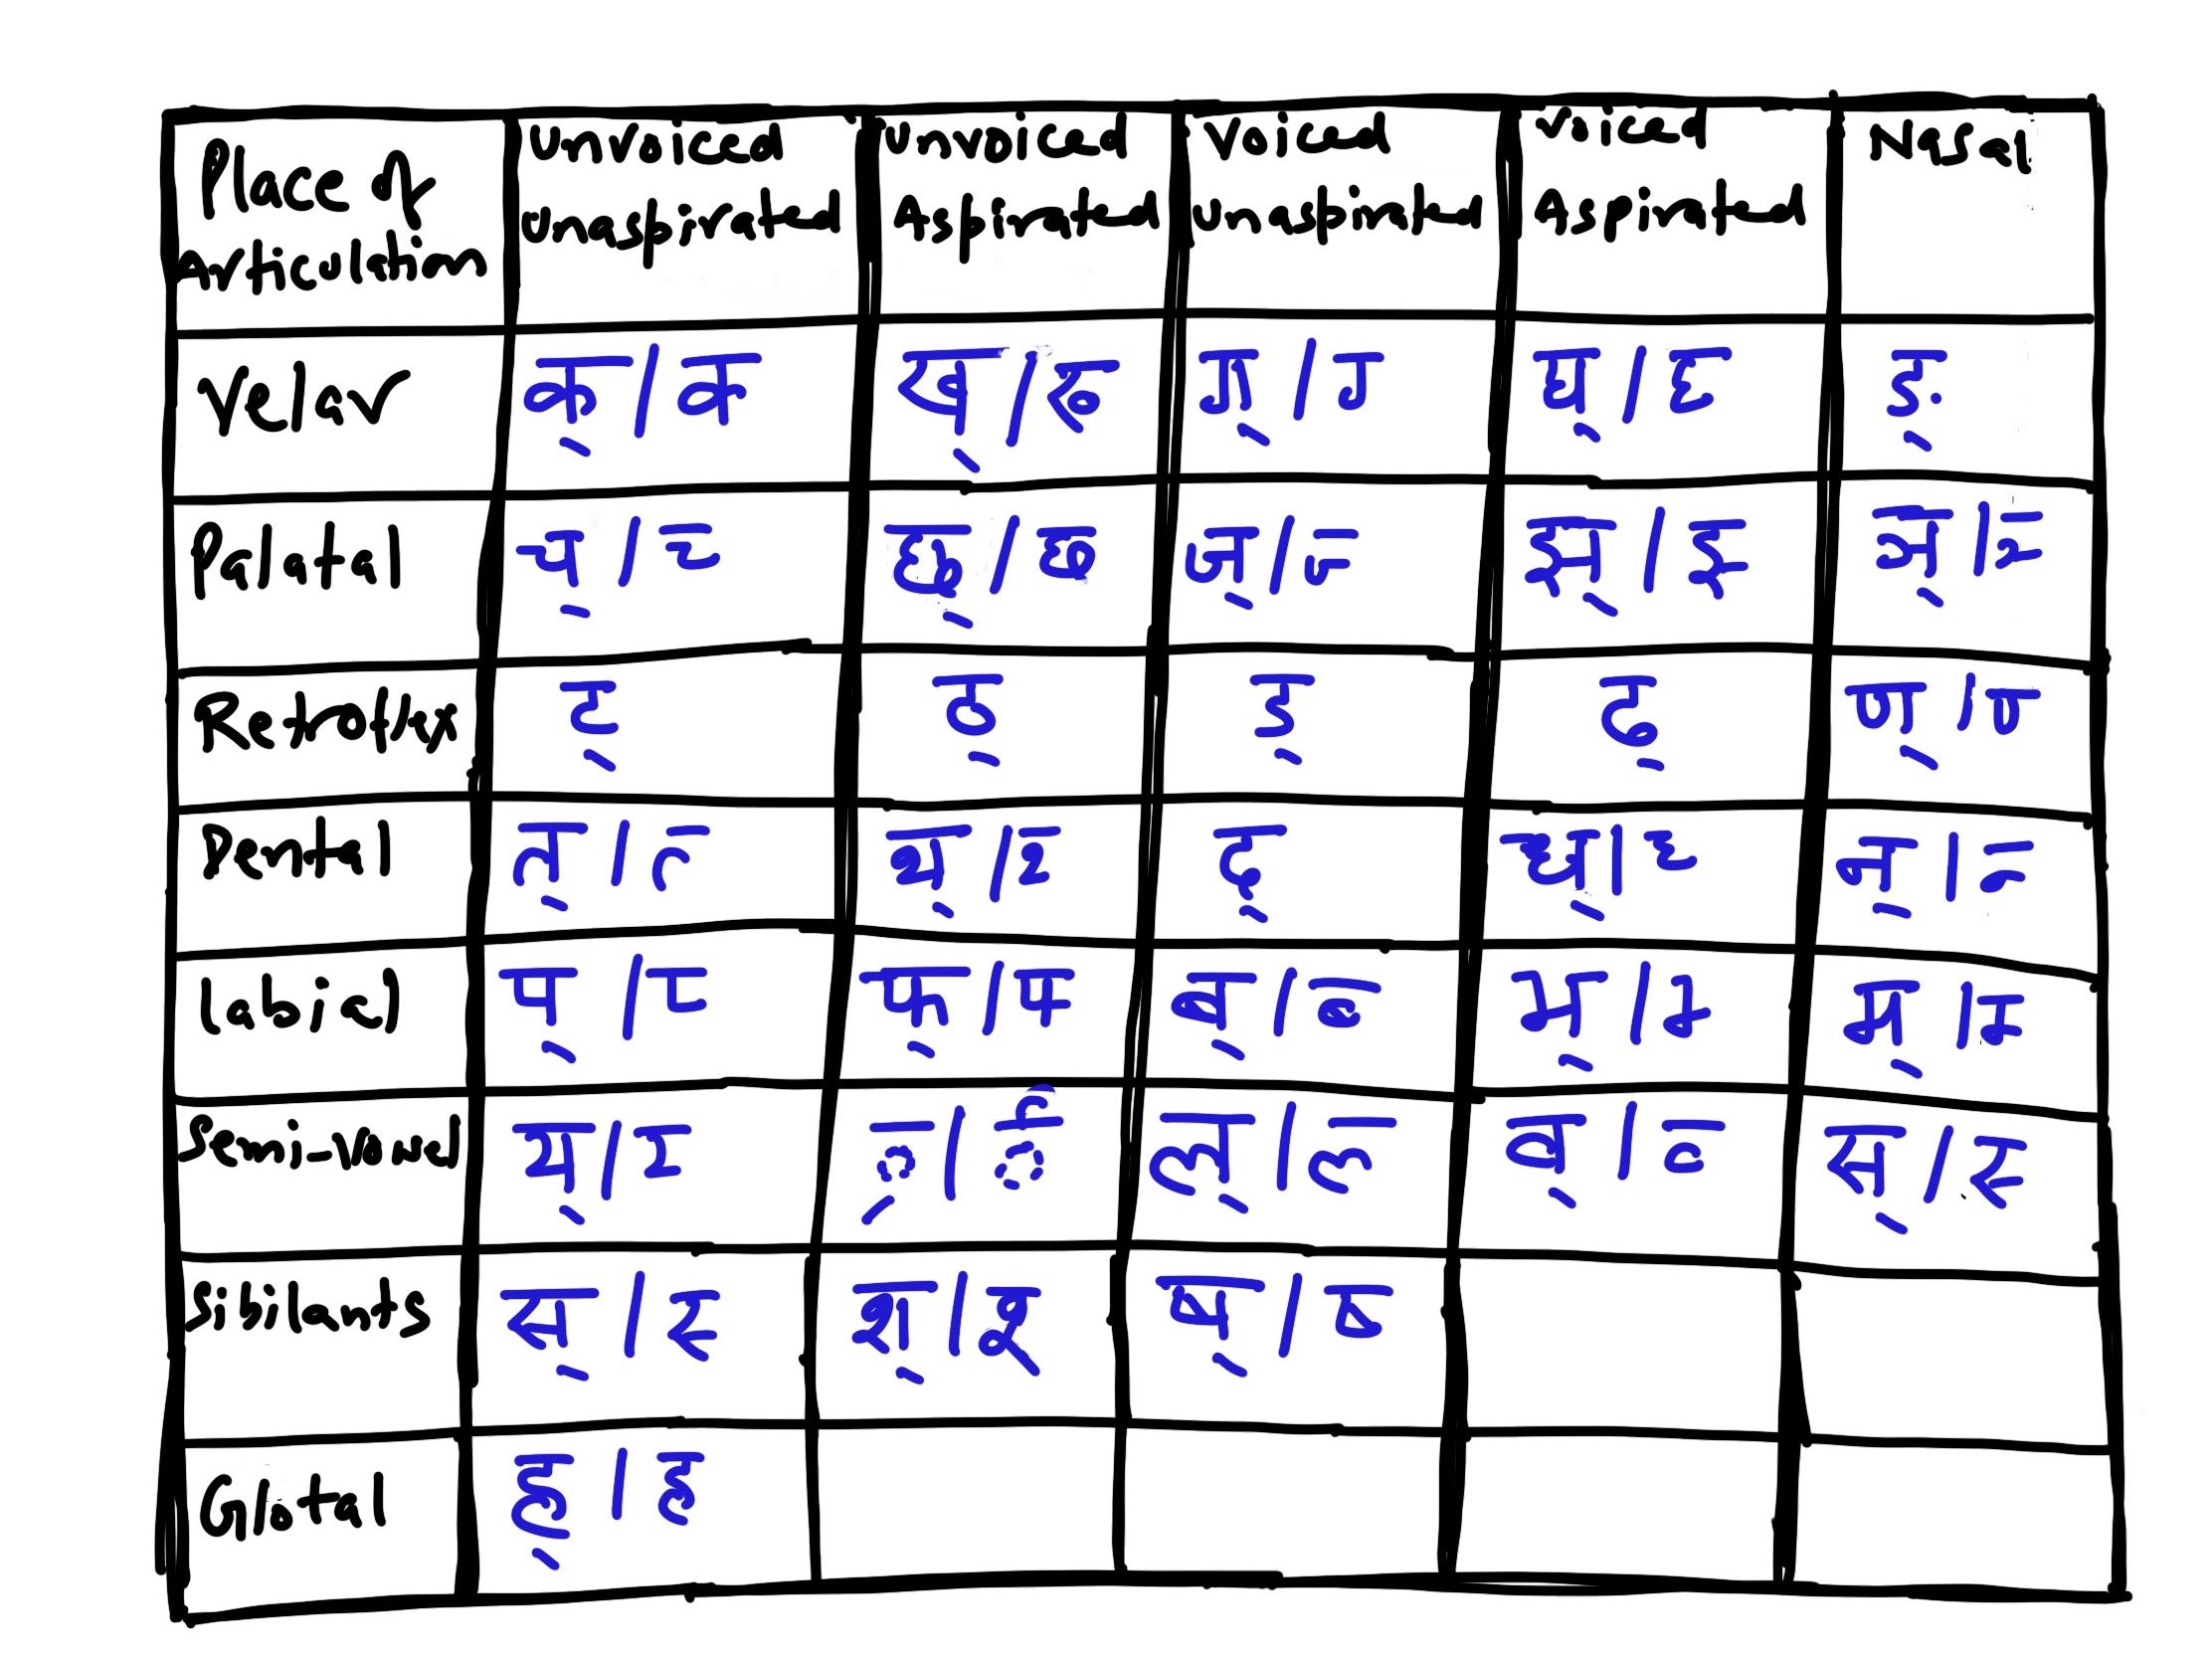 Place of Articulation | Unvoiced Unaspirated | Unvoiced Aspirated | Voiced Unaspirated | Voiced Aspirated | Nasal
Velar | क् / क्‍ | ख् / ख्‍ | ग् / ग्‍ | घ् / घ्‍ | ङ्
Palatal | च् / च्‍ | छ् / छ | ज् / ज्‍ | झ् / झ्‍ | ञ् / ञ्‍
Retroflex | ट् | ठ् | ड् | ढ् | ण् / ण्‍
Dental | त् / त्‍ | थ् / थ्‍ | द् | ध् / ध्‍ | न् / न्‍
Labial | प् / प्‍ | फ् / फ्‍ | ब् / ब्‍ | भ् / भ्‍ | म् / म्‍
Semi-Vowel | य् / य्‍ | ्र / र् | ल् / ल्‍ | व् / व्‍ | स् / स्‍
Sibilants | स् / स्‍ | श् / श्‍ | ष् / ष्‍
Glotal | ह् / ह्‍